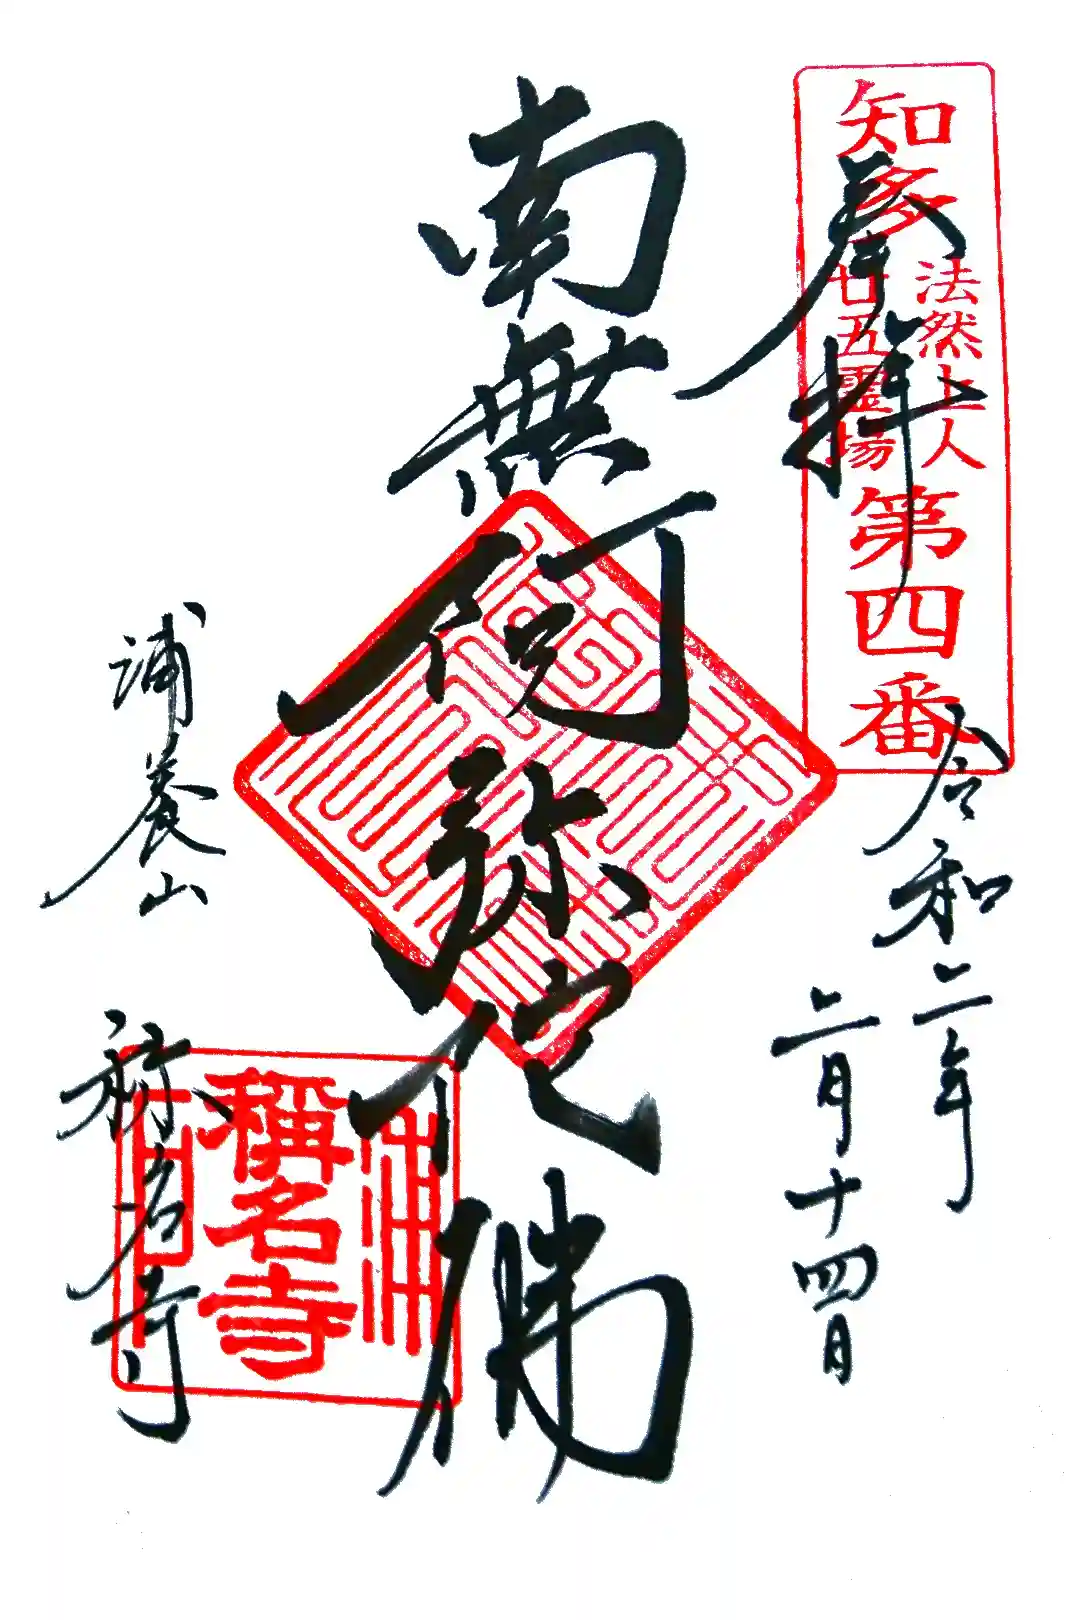 奉拝
知多
法然上人
廿五霊場
第四番
令和二年
二月十四日
南無阿弥陀佛
浦養山
称名寺
稱名寺